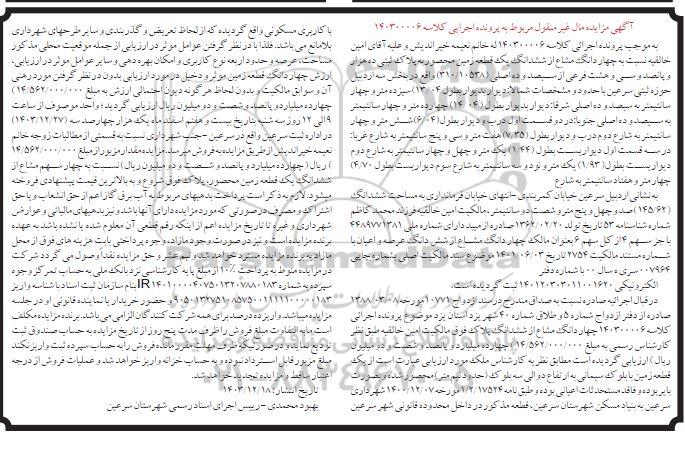 آگهی مزایده مال غیر منقول مربوط به پرونده اجرایی کلاسه ۱۴۰۳۰۰۰۰۶
به موجب پرونده اجرائی کلاسه ۱۴۰۳۰۰۰۰۶ له خانم نعیمه خیراندیش و علیه آقای امین
خالقیه نسبت به چهار دانگ مشاع از ششدانگ یک قطعه زمین محصور به پلاک ثبتی ده هزار
و پانصد و سی و هشت فرعی از سیصد و ده اصلی (۳۱۰/۱۰۵۳۸) واقع در بخش سه اردبیل
حوزه ثبتی سرعین با حدود و مشخصات شمالا: دیوار به دیوار بطول (۱۳/۰۴) سیزده متر و چهار
سانتیمتر به سیصد و ده اصلی شرقا: دیوار بدیوار بطول (۱۴/۰۴) چهارده متر و چهار سانتیمتر
به سیصد و ده اصلی جنوبا: در دو قسمت اول درب و دیوار بطول (۶/۰۴) شش متر و چهار
سانتیمتر به شارع دوم درب و دیوار بطول (۷/۳۵) هفت متر و سی و پنج سانتیمتر به شارع غربا:
در سه قسمت اول دیواریست بطول (۱/۴۴) یک متر و چهل و چهار سانتیمتر به شارع دوم
دیواریست بطول (۱/۹۳) یک متر و نود و سه سانتیمتر به شارع سوم دیواریست بطول (۴/۷۰)
چهار متر و هفتاد سانتیمتر به شارع
به نشانی اردبیل سرعین خیابان کمربندی -انتهای خیابان فرمانداری به مساحت ششدانگ
(۱۴۵/۶۲) صد و چهل و پنج متر و شصت دو سانتیمتر، مالکیت امین خالقیه فرزند محمد کاظم
شماره شناسنامه ۵۳ تاریخ تولد ۱۳۶۲/۰۲/۲۰ صادره از میبد دارای شماره ملی ۴۴۸۹۷۷۱۳۸۱
با جز سهم ۴ از کل سهم ۶ بعنوان مالک چهار دانگ مشاع از شش دانگ عرصه و اعیان با
شماره مستند مالکیت ۲۷۵۴ تاریخ ۱۴۰۱/۰۶/۰۳ موضوع سند مالکیت اصلی بشماره چاپی
۰۰۷۹۶۴ سری ه سال ۰۰ با شماره دفتر
الکترونیکی ۱۴۰۱۲۰۳۰۳۰۱۱۰۰۱۶۲۰ ثبت گردیده است.
در قبال اجرائیه صادره نسبت به صداق مندرج در سند ازدواج ۱۰۷۷۱ مورخه ۱۳۸۸/۰۳/۰۸
صادره از دفتر ازدواج شماره ۵ و طلاق شماره ۴۰ شهر یزد استان یزد موضوع پرونده اجرائی
کلاسه ۱۴۰۳۰۰۰۰۶ چهار دانگ مشاع از ششدانگ پلاک فوق مالکیت امین خالقیه طبق نظر
کارشناس رسمی به مبلغ ۱۴/۵۶۲/۰۰۰/۰۰۰ (چهارده میلیارد و پانصد و شصت و دو میلیون
ریال) ارزیابی گردیده است مطابق نظریه کارشناس ملک مورد ارزیابی عبارت است از یک
قطعه زمین با بلوک سیمانی به ارتفاع دو الی سه بلوک (حدود نیم متر) محصور شده و بصورت
بایر بوده و فاقد مستحدثات اعیانی بوده و طبق نامه ۱/۲/۱۷۵۲۴ مورخه ۱۴۰۰/۱۲/۰۷ شهرداری
سرعین به بنیاد مسکن شهرستان سرعین، قطعه مذکور در داخل محدوده قانونی شهر سرعین
با کاربری مسکونی واقع گردیده که از لحاظ تعریض و گذربندی و سایر طرحهای شهرداری
بلامانع می باشد. فلذا با در نظر گرفتن عوامل موثر در ارزیابی از جمله موقعیت محلی مذکور
مساحت، عرصه و حدود اربعه نوع کاربری و امکان بهره دهی و سایر عوامل موثر در ارزیابی،
ارزش چهار دانگ قطعه زمین موثر و دخیل در مورد ارزیابی بدون در نظر گرفتن مورد رهنی
آن و سوابق مالکیت و بدون لحاظ هر گونه دیون احتمالی ارزش به مبلغ ۱۴/۵۶۲/۰۰۰/۰۰۰
چهارده میلیارد پانصد و شصت و دو میلیون ریال ارزیابی گردید؛ واحد موصوف از ساعت
۹ الی ۱۲ روز سه شنبه بتاریخ بیست و هفتم اسفند ماه یک هزار چهارصد سه (۱۴۰۳/۱۲/۲۷)
در اداره ثبت سرعین واقع در سرعین -جنب شهرداری نسبت به قسمتی از مطالبات زوجه خانم
نعیمه خیراندیش از طریق مزایده به فروش میرسد. مزایده مقدار مزبور از مبلغ ۱۴/۵۶۲/۰۰۰/۰۰۰
) ریال (چهارده میلیارد و پانصد و شصت و دو میلیون ریال) نسبت به چهار سهم مشاع از
ششدانگ یک قطعه زمین محصور، پلاک فوق شروع و به بالاترین قیمت پیشنهادی فروخته
میشود. لازم به ذکر است پرداخت بدهیهای مربوط به آب برق گاز اعم از حق انشعاب و یا حق
اشتراک و مصرف در صورتی که مورد مزایده دارای آنها باشد و نیز بدهیهای مالیاتی و عوارض
شهرداری و غیره تا تاریخ مزایده اعم از اینکه رقم قطعی آن معلوم شده یا نشده باشد به عهده
برنده مزایده است و نیز در صورت وجود مازاد، وجوه پرداختی بابت هزینه های فوق از محل
مازاد به برنده مزایده مسترد خواهد شد و نیم عشر و حق مزایده نقداً وصول می گردد شرکت
در مزایده منوط به پرداخت ۱۰٪ از مبلغ پایه کارشناسی نزد بانک ملی به حساب تمرکز وجوه
سپرده به شماره IR۱۴۰۱۰۰۰۰۴۰۷۵۰۱۳۲۰۷۸۸۰۱۸۳ بنام سازمان ثبت اسناد با شناسه واریز
۹۰۵۰۱۳۲۷۵۱۰۸۵۷۵۰۰۱۱۱۱۱۰۰۰۰۰۱۸۳ و حضور خریدار یا نماینده قانونی او در جلسه
مزایده میباشد. واریز ده درصد برای همه شرکت کنندگان الزامی می باشد. برنده مزایده مکلف
است مابه التفاوت مبلغ فروش را ظرف مدت پنج روز از تاریخ مزایده به حساب صندوق ثبت
تودیع نماید و در صورتیکه ظرف مهلت مقرر مانده فروش را به حساب سپرده ثبت واریز نکند
مبلغ مزبور قابل استرداد نبوده و به حساب خزانه واریز خواهد شد و عملیات فروش از درجه
اعتبار ساقط و مزایده تجدید خواهد شد.
تاریخ انتشار: ۱۴۰۳/۱۲/۱۸
بهبود محمدی -رییس اجرای اسناد رسمی شهرستان سرعین